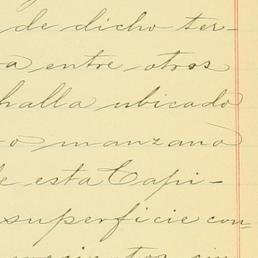 de dicho ter-
a entre otros
halla ubicado
o manzana
e esta Capi-
superficie con-